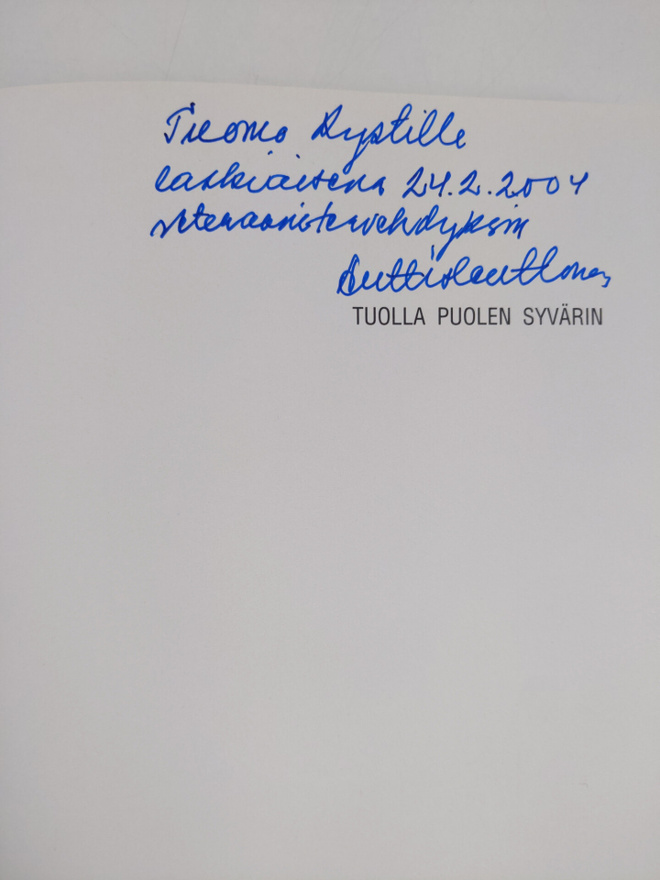 Tuomo Rystille
laskiaisena 24.2.2004
veteraanitervehdyksin
TUOLLA PUOLEN SYVÄRIN